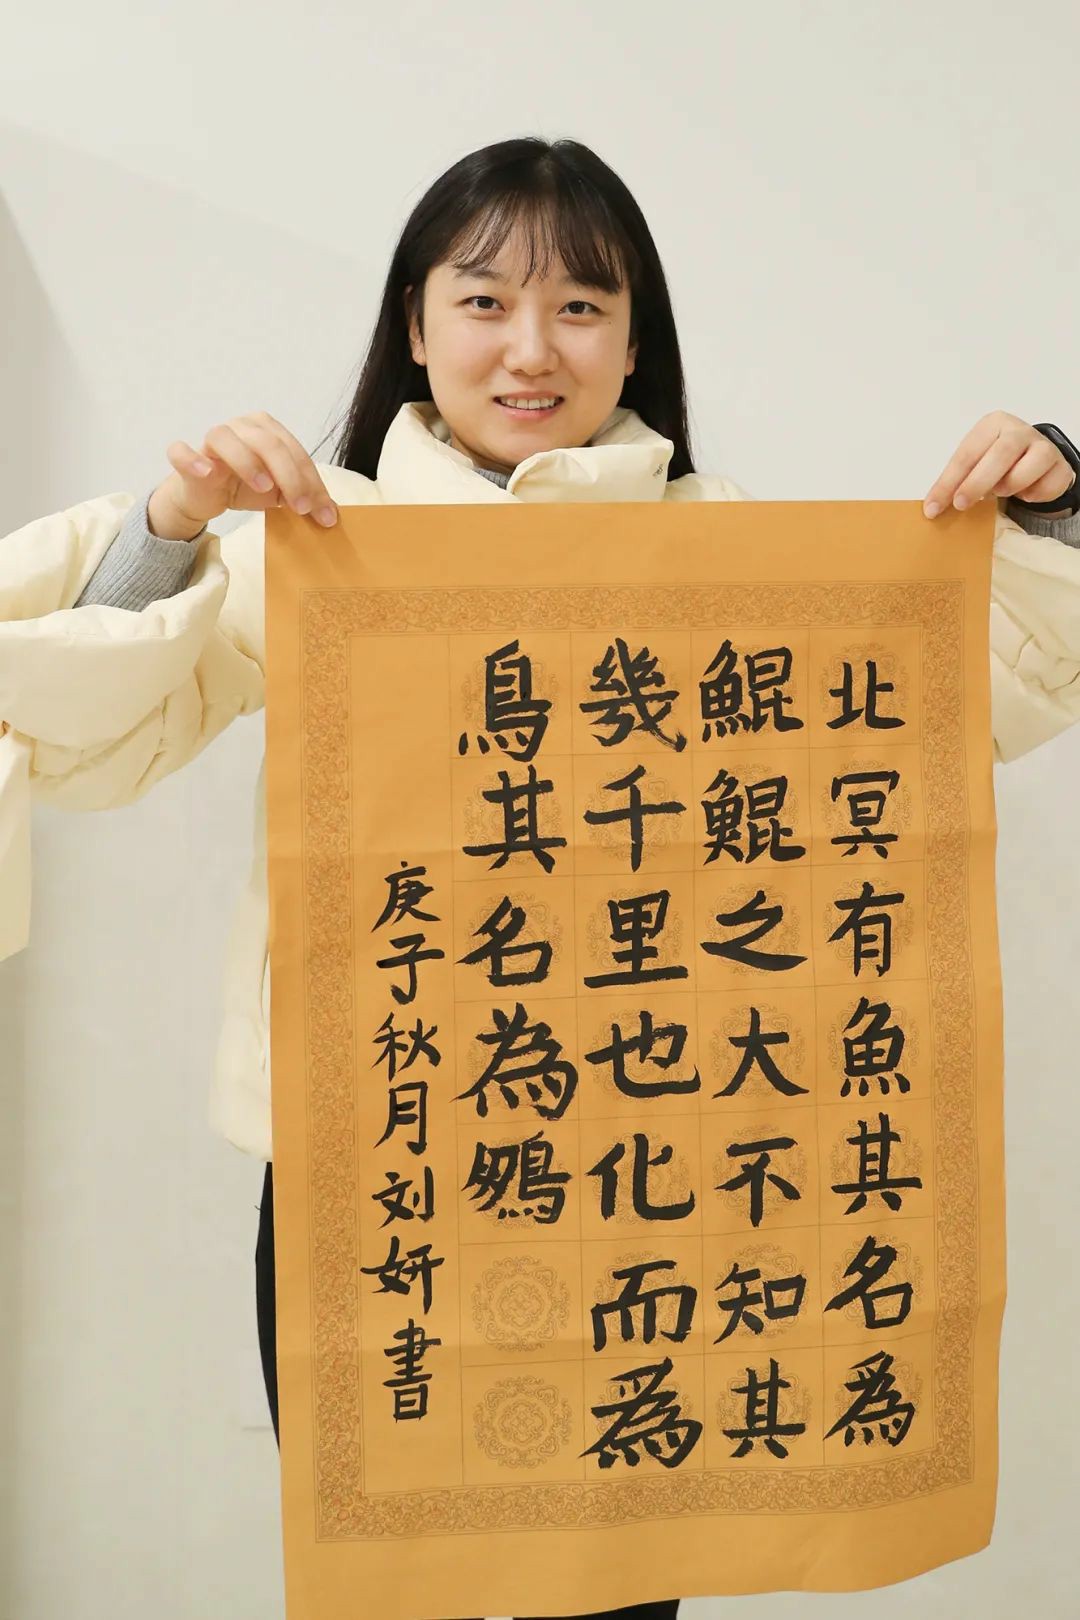 北冥有魚其名為
鯤鯤之大不知其
幾千里也化而為
鳥其名為鵬
庚子秋月刘妍書